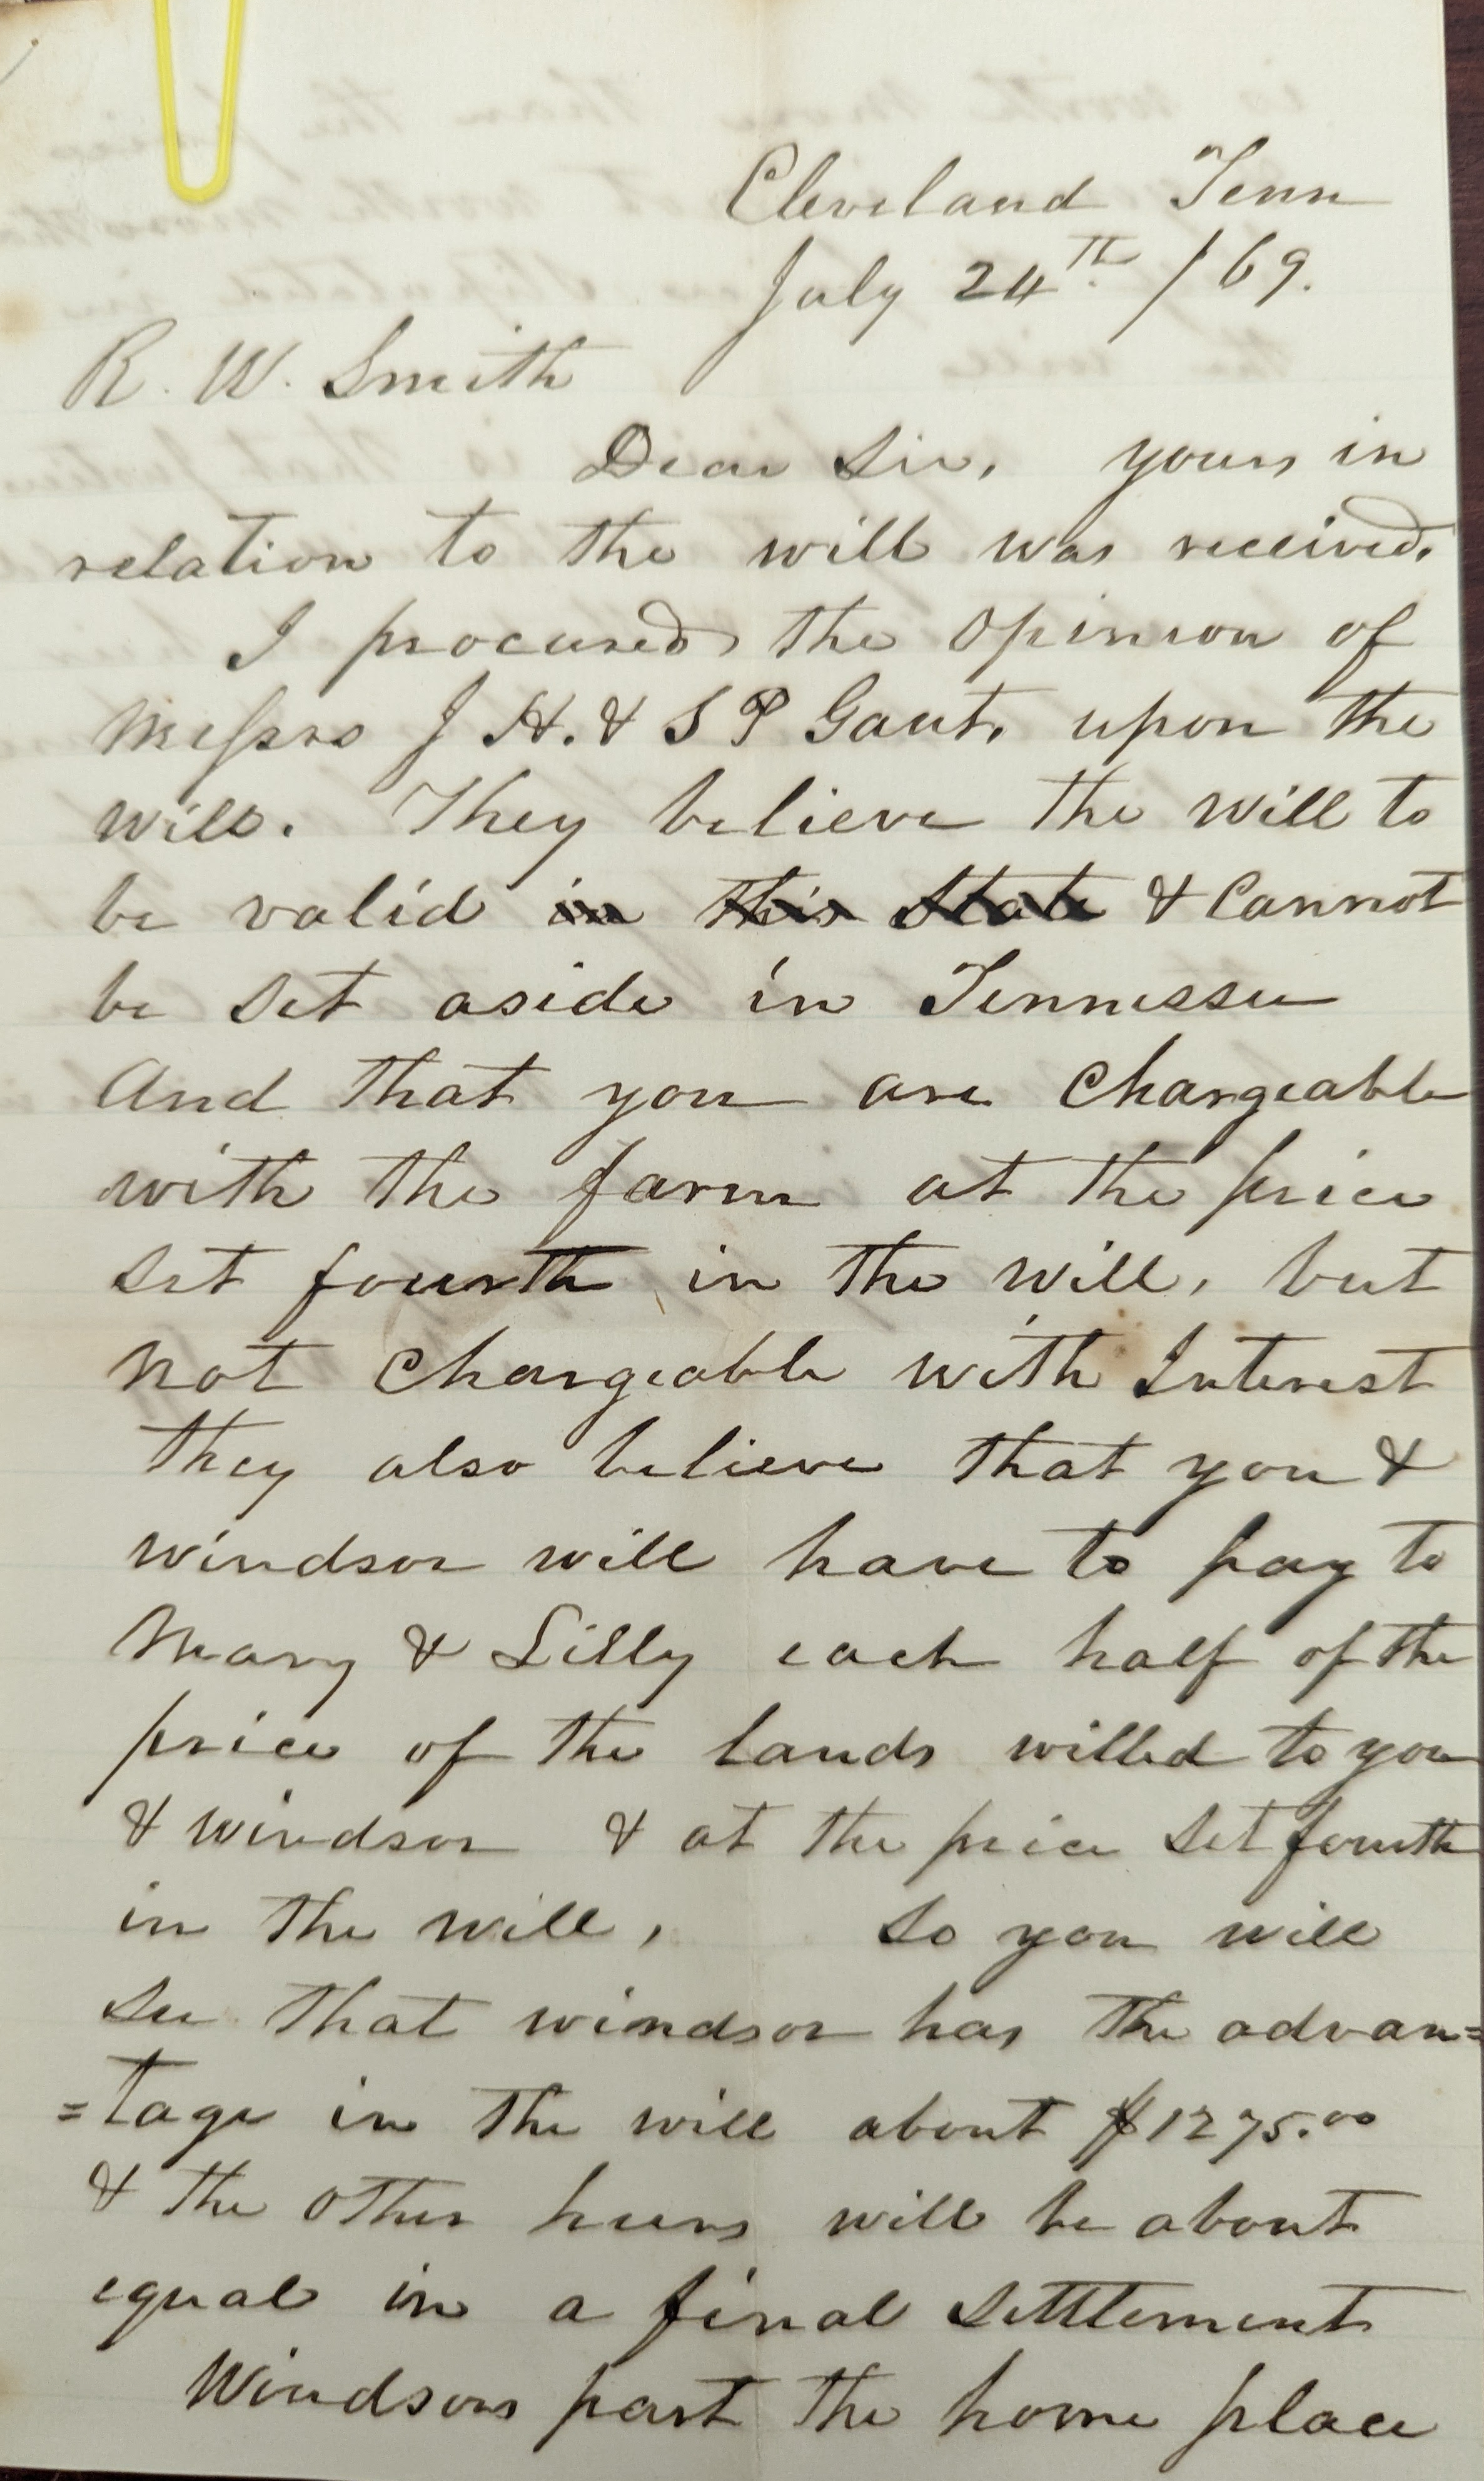 Cleveland Tenn
July 24th /69.
R. W. Smith
Dear Sir, yours in
relation to the will was received.
I procured the opinion of
Messrs J H. & S P Gaut, upon the
will. They believe the will to
be valid in this State & Cannot
be set aside in Tennessee
And that you are Chargeable
with the farm at the price
set fourth in the will, but
not Chargeable with Interest
they also believe that you &
windsor will have to pay to
Mary & Lilly each half of the
price of the lands willed to you
& windsor & at the price set fourth
in the will, So you will
see that windsor has the advan=
=tage in the will about $1275.00
& the other heirs will be about
equal in a final settlement
Windsors part the home place